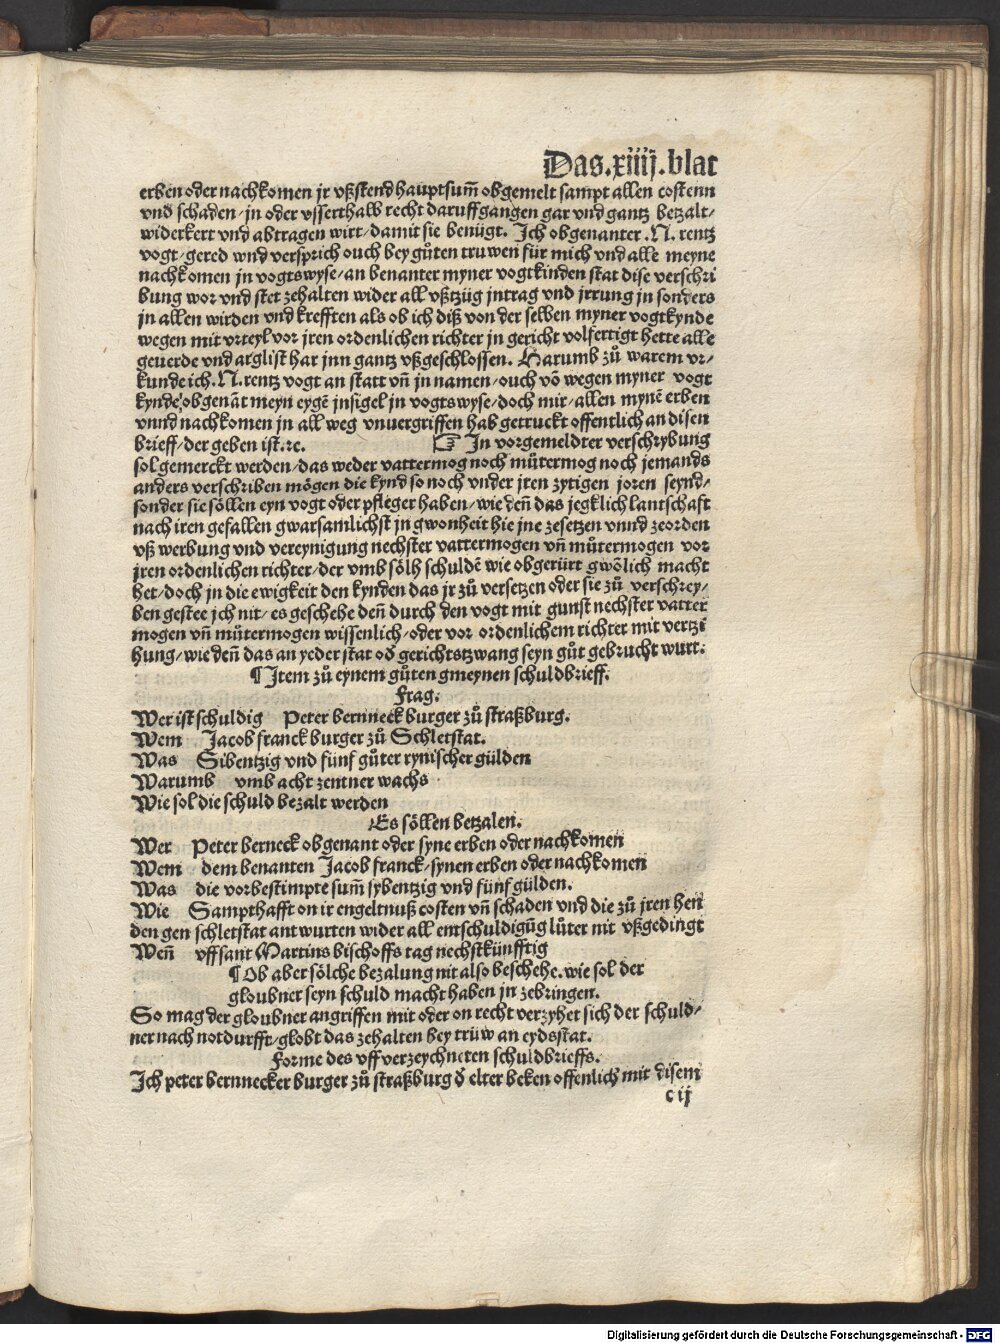 Das.xiiij.blat
erben oder nachkomen jr vßstend hauptsum̄ obgemelt sampt allen costenn
vnd schaden/jn oder vsserthalb recht daruff gangen gar vnd gantz betzalt/
widerkert vnd abtragen wirt/damit sie benügt. Ich obgenanter .N. rentz
vogt/gered wnd versprich ouch bey gůten truwen für mich vnd alle meyne
nachkomen jn vogtswyse/an benanter myner vogtkinden stat dise verschri
bung wor vnd stet zehalten wider all vßtzüg jntrag vnd jrrung jn sonders
jn allen wirden vnd krefften als ob ich diß von der selben myner vogtkynde
wegen mit vrteyl vor jren ordenlichen richter jn gericht volfertigt hette alle
geuerde vnd arglist har jnn gantz vßgeschlossen. Harumb zů warem vr/
kunde ich .N. rentz vogt an statt vn̄ jn namen/ouch vō wegen myner vogt
kynde obgenāt meyn eygē jnsigel jn vogtswyse/doch mir/allen mynē erben
vnnd nachkomen jn all weg vnuergriffen hab getruckt offentlich an disen
brieff/der geben ist.rc. ☞ In vorgemeldter verschrybung
sol gemerckt werden/das weder vattermog noch můtermog noch jemands
anders verschriben mögen die kynd so noch vnder jren zytigen joren seynd/
sonder sie söllen eyn vogt oder pfleger haben/wie den̄ das jegklich lantschaft
nach iren gefallen gwarsamlichst jn gwonheit hie jne zesetzen vnnd zeorden
vß werbung vnd vereynigung nechster vattermogen vn̄ můtermogen vor
jren ordenlichen richter/der vmb sölh schuldē wie obgerürt gwölich macht
het/doch in die ewigkeit den kynden das jr zů versetzen oder sie zů verschrey/
ben gestee jch nit/es geschehe den̄ durch den vogt mit gunst nechster vatter
mogen vn̄ můtermogen wissenlich/oder vor ordenlichem richter mit vertzi
hung/wie den̄ das an yeder stat oď gerichtstzwang seyn gůt gebrucht wurt.
¶Item zů eynem gůten gmeynen schuldbrieff.
Frag.
Wer ist schuldig Peter bernneck burger zů straßburg.
Wem Jacob franck burger zů Schletstat.
Was Sibentzig vnd fünf gůter rynischer gülden
Warumb vmb acht zentner wachs
Wie sol die schuld bezalt werden
Es söllen betzalen.
Wer Peter berneck obgenant oder syne erben oder nachkomen
Wem dem benanten Jacob franck/synen erben oder nachkomen
Was die vorbestimpte sum̄ sybentzig vnd fünf gülden.
Wie Sampthafft on ir engeltnuß costen vn̄ schaden vnd die zů jren hen
den gen schletstat antwurten wider all entschuldigūg lüter nit vßgedingt
Wen̄ vff sant Martins bischoffs tag nechstkünfftig
¶Ob aber sölche bezalung nit also beschehe.wie sol der
gloubner seyn schuld macht haben jn zebringen.
So mag der gloubner angriffen mit oder on recht verzyhet sich der schuld/
ner nach notdurfft/globt das zehalten bey trüw an eydsstat.
Forme des vffverzeychneten schuldbrieffs.
Ich peter bernnecker burger zů straßburg ď elter beken offenlich mit disem
c ij
Digitalisierung gefördert durch die Deutsche Forschungsgemeinschaft - DFG